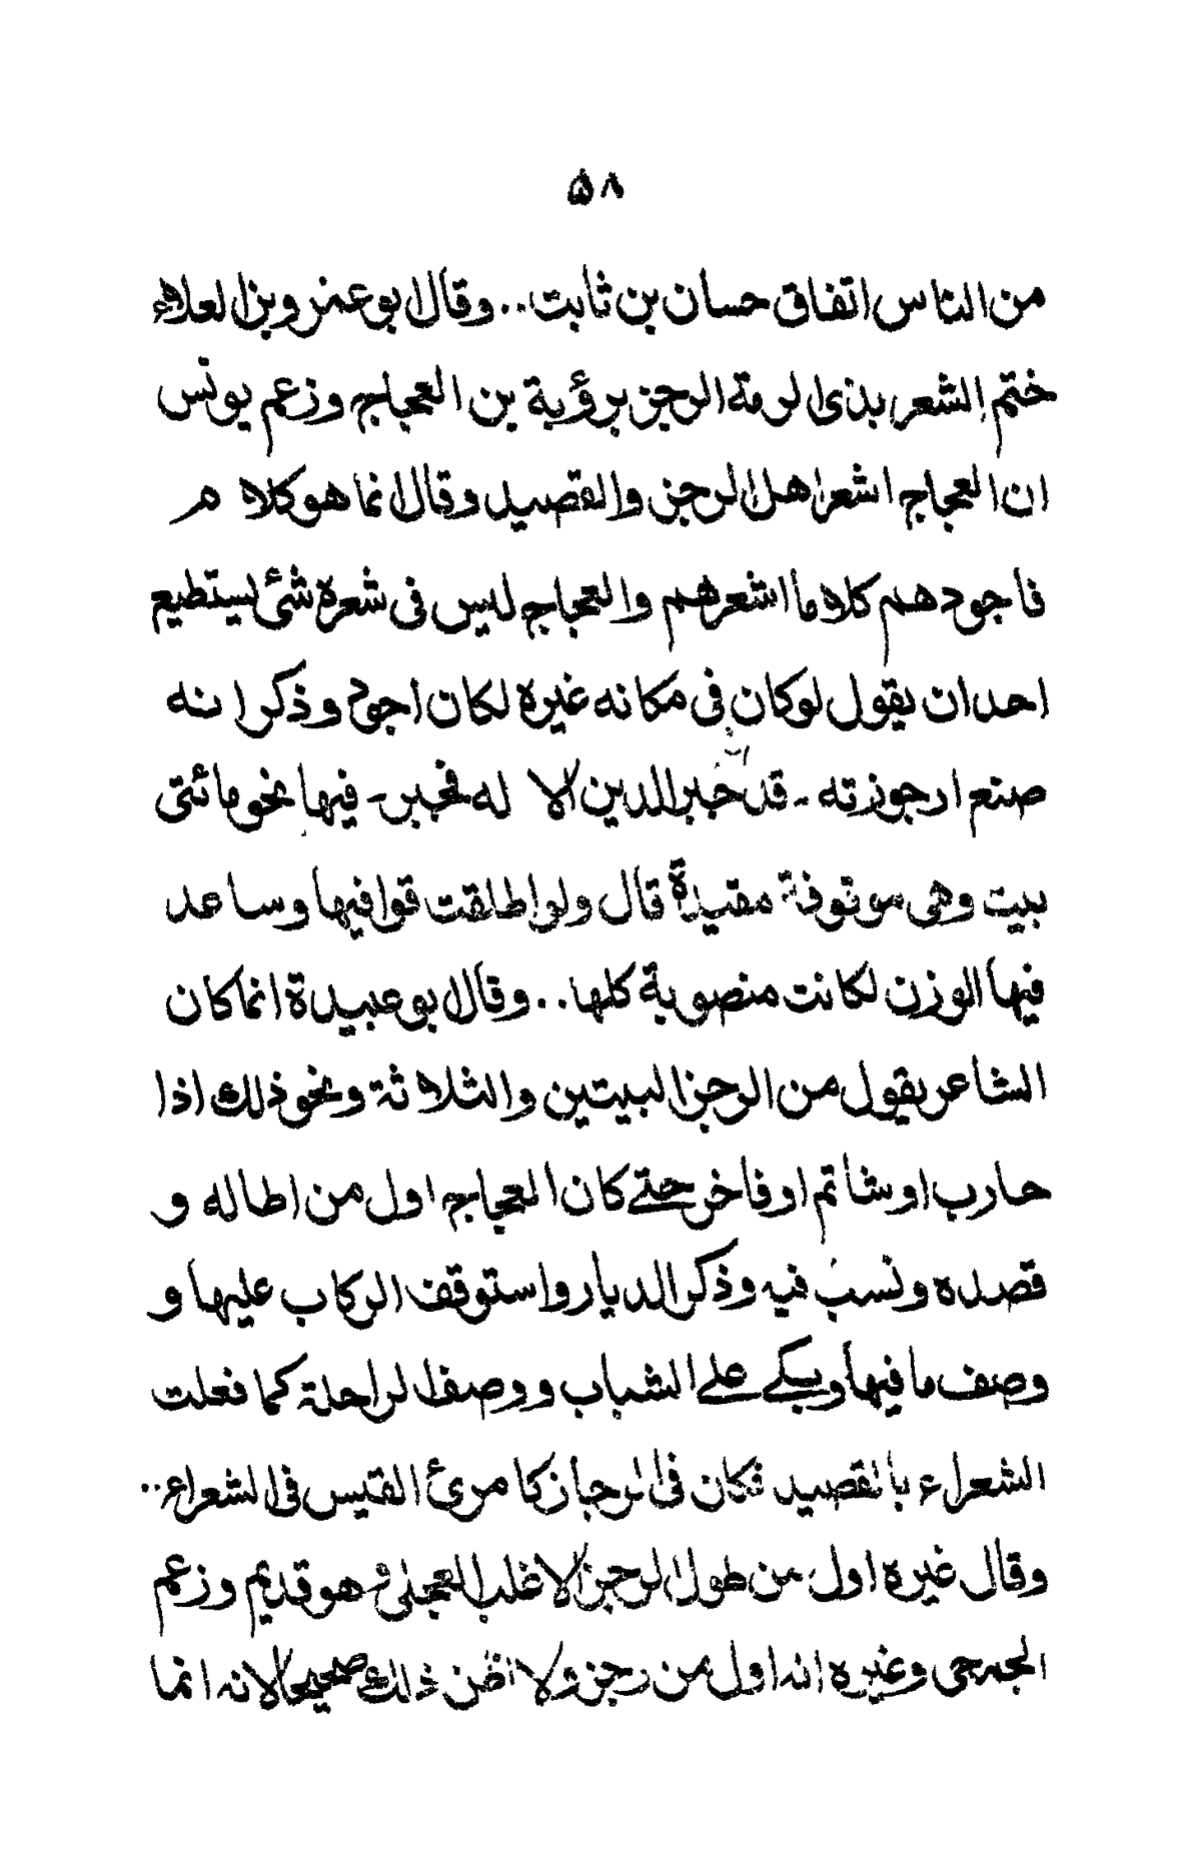 ٥٨
من الناس اتفاق حسان بن ثابت.. وقال ابو عمر وبن العلاء
ختم الشعر بذى الرمة الرجز برؤبة بن العجاج وزعم يونس
ان العجاج اشعر اهل الرجز والقصيد وقال انما هو كلام
فأجودهم كلاما اشعرهم والعجاج ليس فى شعره شئ يستطيع
احد ان يقول لوكان فى مكانه غيره لكان اجود وذكر انه
صنع ارجوزته - قد جبر الدين الا له فجبر - فيها نحو مائتى
بيت وهى موقوفة مقيدة قال ولو اطلقت قوافيها وساعد
فيها الوزن لكانت منصوبة كلها.. وقال ابو عبيدة انما كان
الشاعر يقول من الرجز البيتين والثلاثة ونحو ذلك اذا
حارب او شاتم او فاخر حتے كان العجاج اول من اطاله و
قصده ونسب فيه وذكر الديار واستوقف الركاب عليها و
وصف ما فيها وبكے علے الشباب ووصف الراحلة كما فعلت
الشعراء بالقصيد فكان فى الرجاز كامرئ القيس فى الشعراء..
وقال غيره اول من طول الرجز الاغلب العجلى وهو قديم وزعم
الجمحى وغيره انه اول من رجز ولا اظن ذلك صحيحا لانه انما